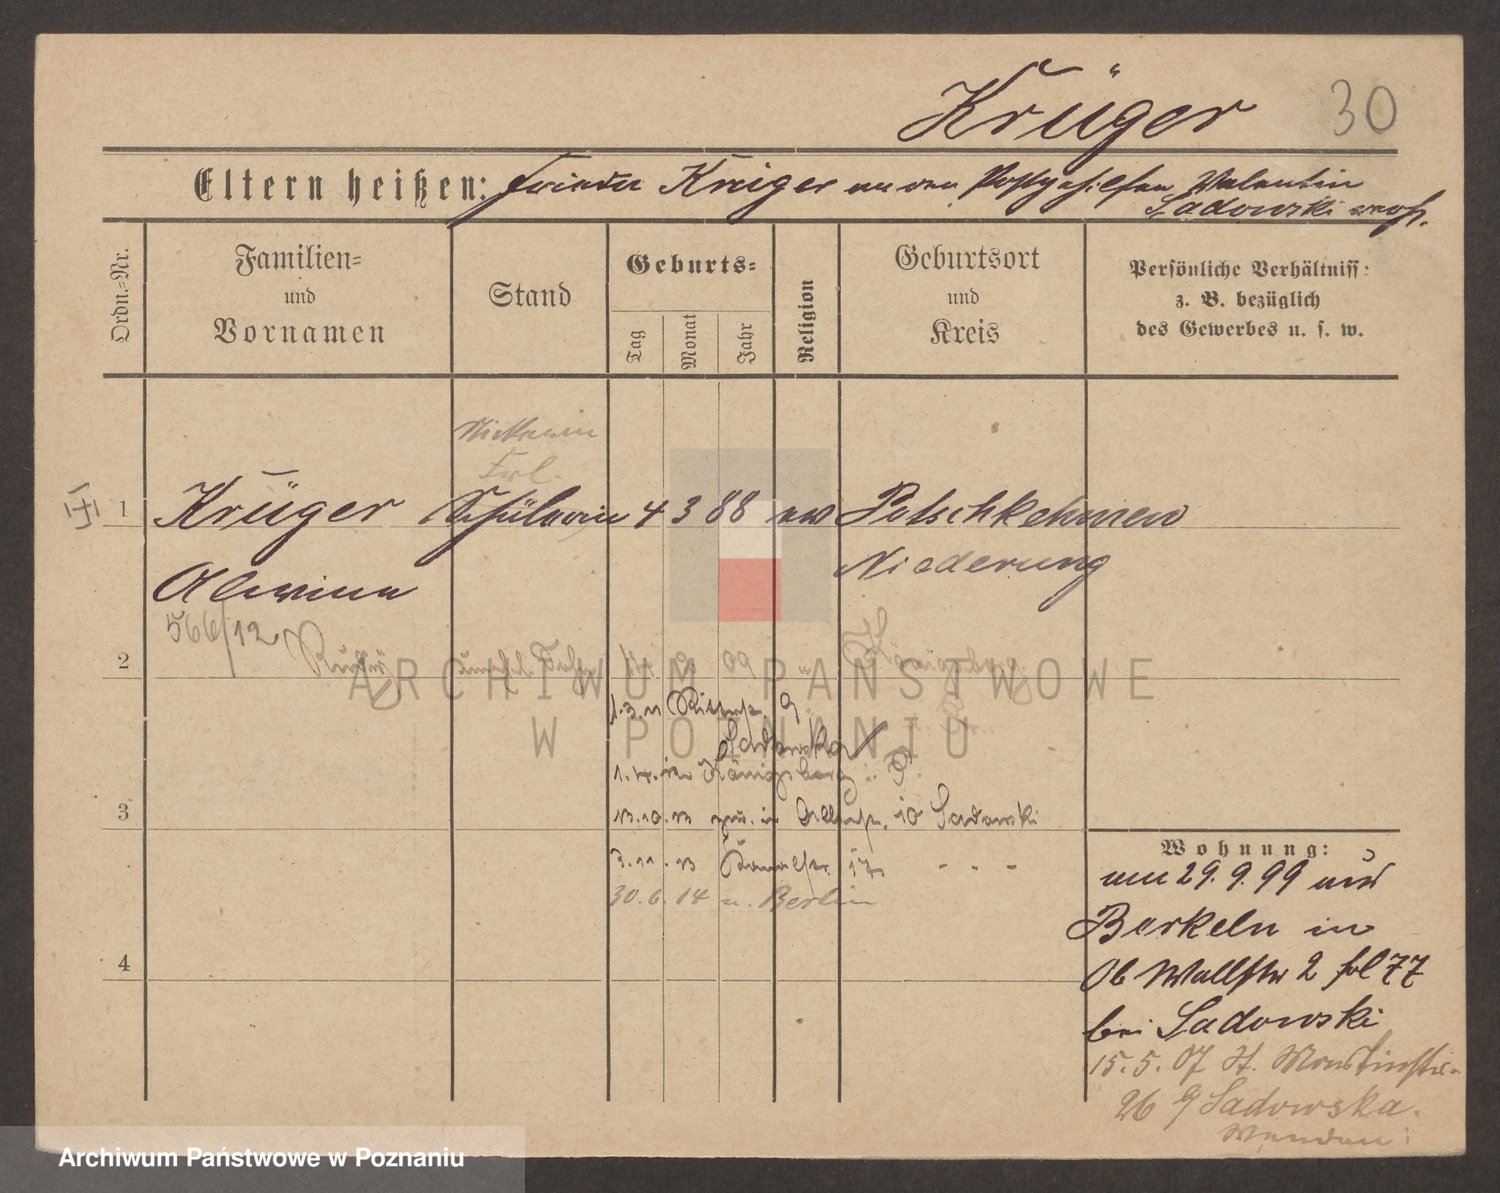 Krüger 30
Eltern heißen: Frieda Krüger an den Postgehilfen Valentin
Sadowski verh.
Ordn.-Nr.
Familien-
und
Vornamen
Stand
Geburts-
Tag
Monat
Jahr
Religion
Geburtsort
und
Kreis
Persönliche Verhältniss:
z. B. bezüglich
des Gewerbes u. s. w.
Frl.
1 Krüger Schülerin 4 3 88 ew Potschkehmen
Niederung
Alwine
566/12
2
1.3.11
Sadowska
1.4. Königsberg
3
13.10.13 in 10 Sadowski
3.11.13 - - -
30.6.14 n. Berlin
4
Wohnung:
am 29.9.99 aus
Berkeln in
Ob Wallstr 2 fol 77
bei Sadowski
15.5.07 St. Martinstr.
26 Sadowska.
ARCHIWUM PAŃSTWOWE
W POZNANIU
Archiwum Państwowe w Poznaniu